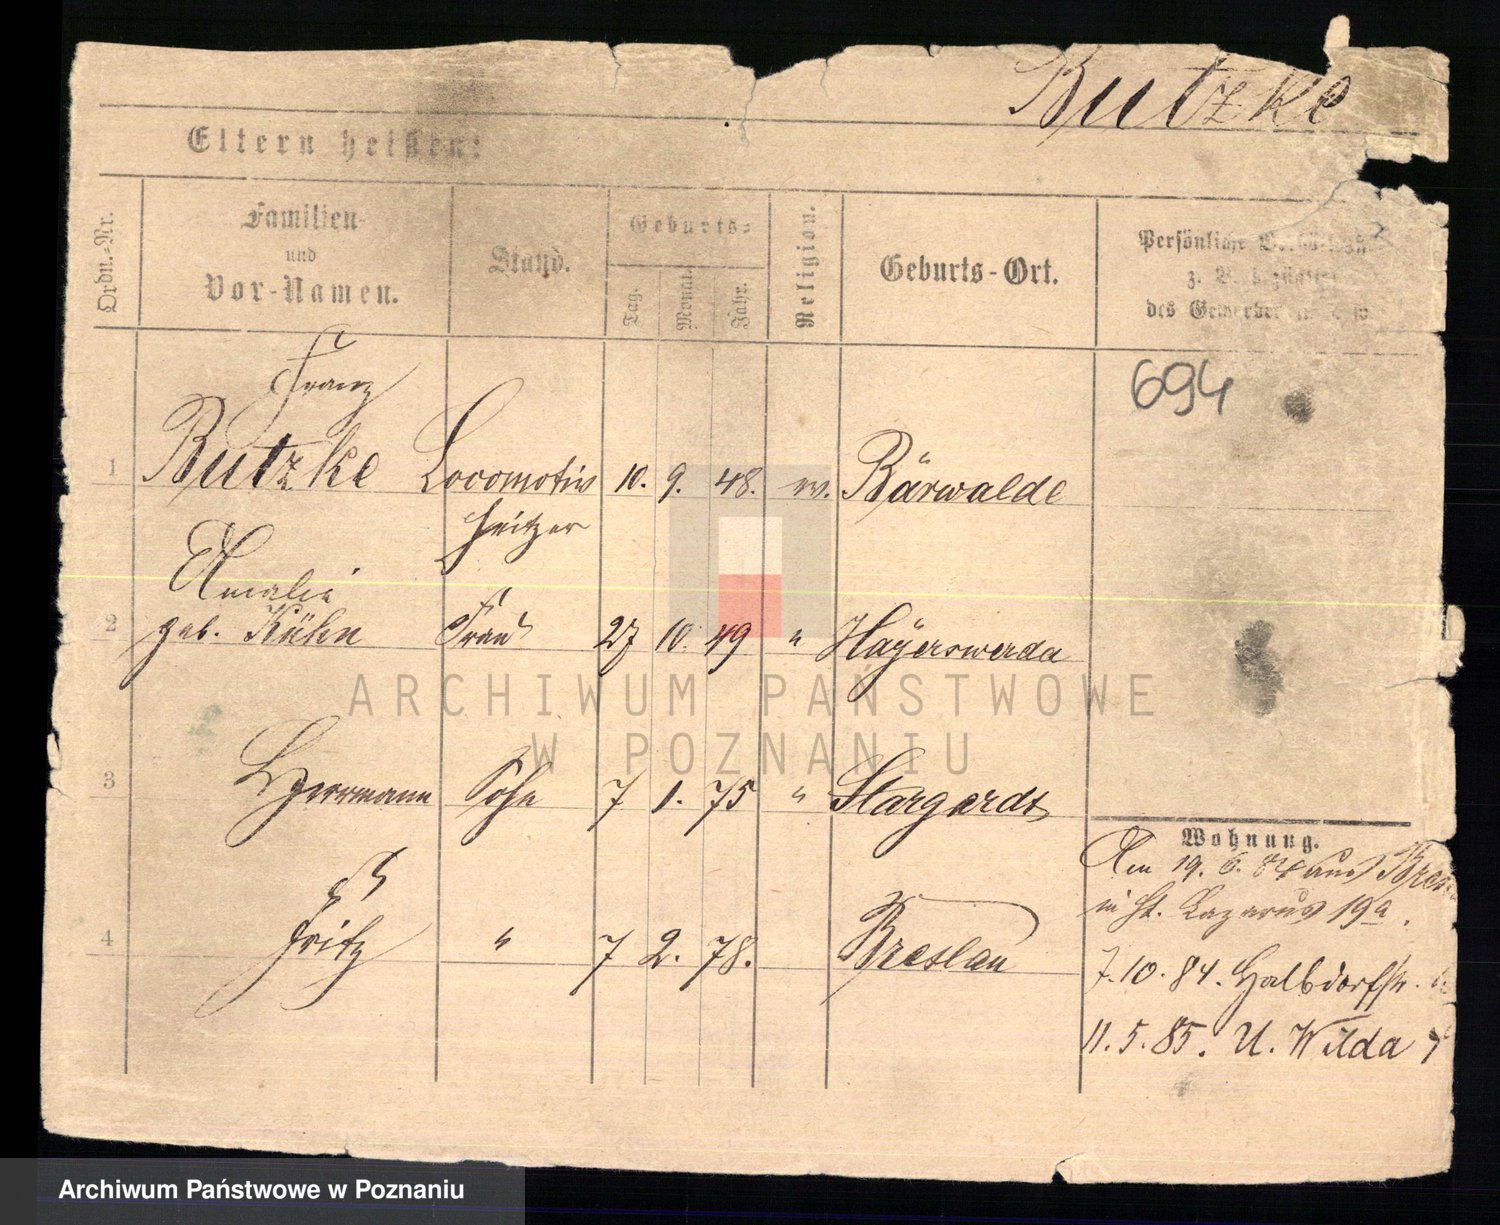 Butzke
Eltern heißen:
Ordn.-Nr.
Familien-
und
Vor-Namen.
Stand.
Geburts-
Tag.
Monat.
Jahr.
Religion.
Geburts-Ort.
Persönliche
des Gewerbes
694
Franz
1 Butzke Locomotiv 10. 9. 48. ev. Bärwalde
heitzer
Amalie
2 geb. Kühn Frau 27 10. 49 " Hayerswerda
3 Herrmann Sohn 7 1. 75 " Stargardt
4 Fritz " 7 2. 78. Breslau
Wohnung.
Am 19. 6. 84 aus Bres
in St. Lazarus 19a.
7. 10. 84. Halbdorfstr.
11. 5. 85. U. Wilda
ARCHIWUM PAŃSTWOWE
W POZNANIU
Archiwum Państwowe w Poznaniu